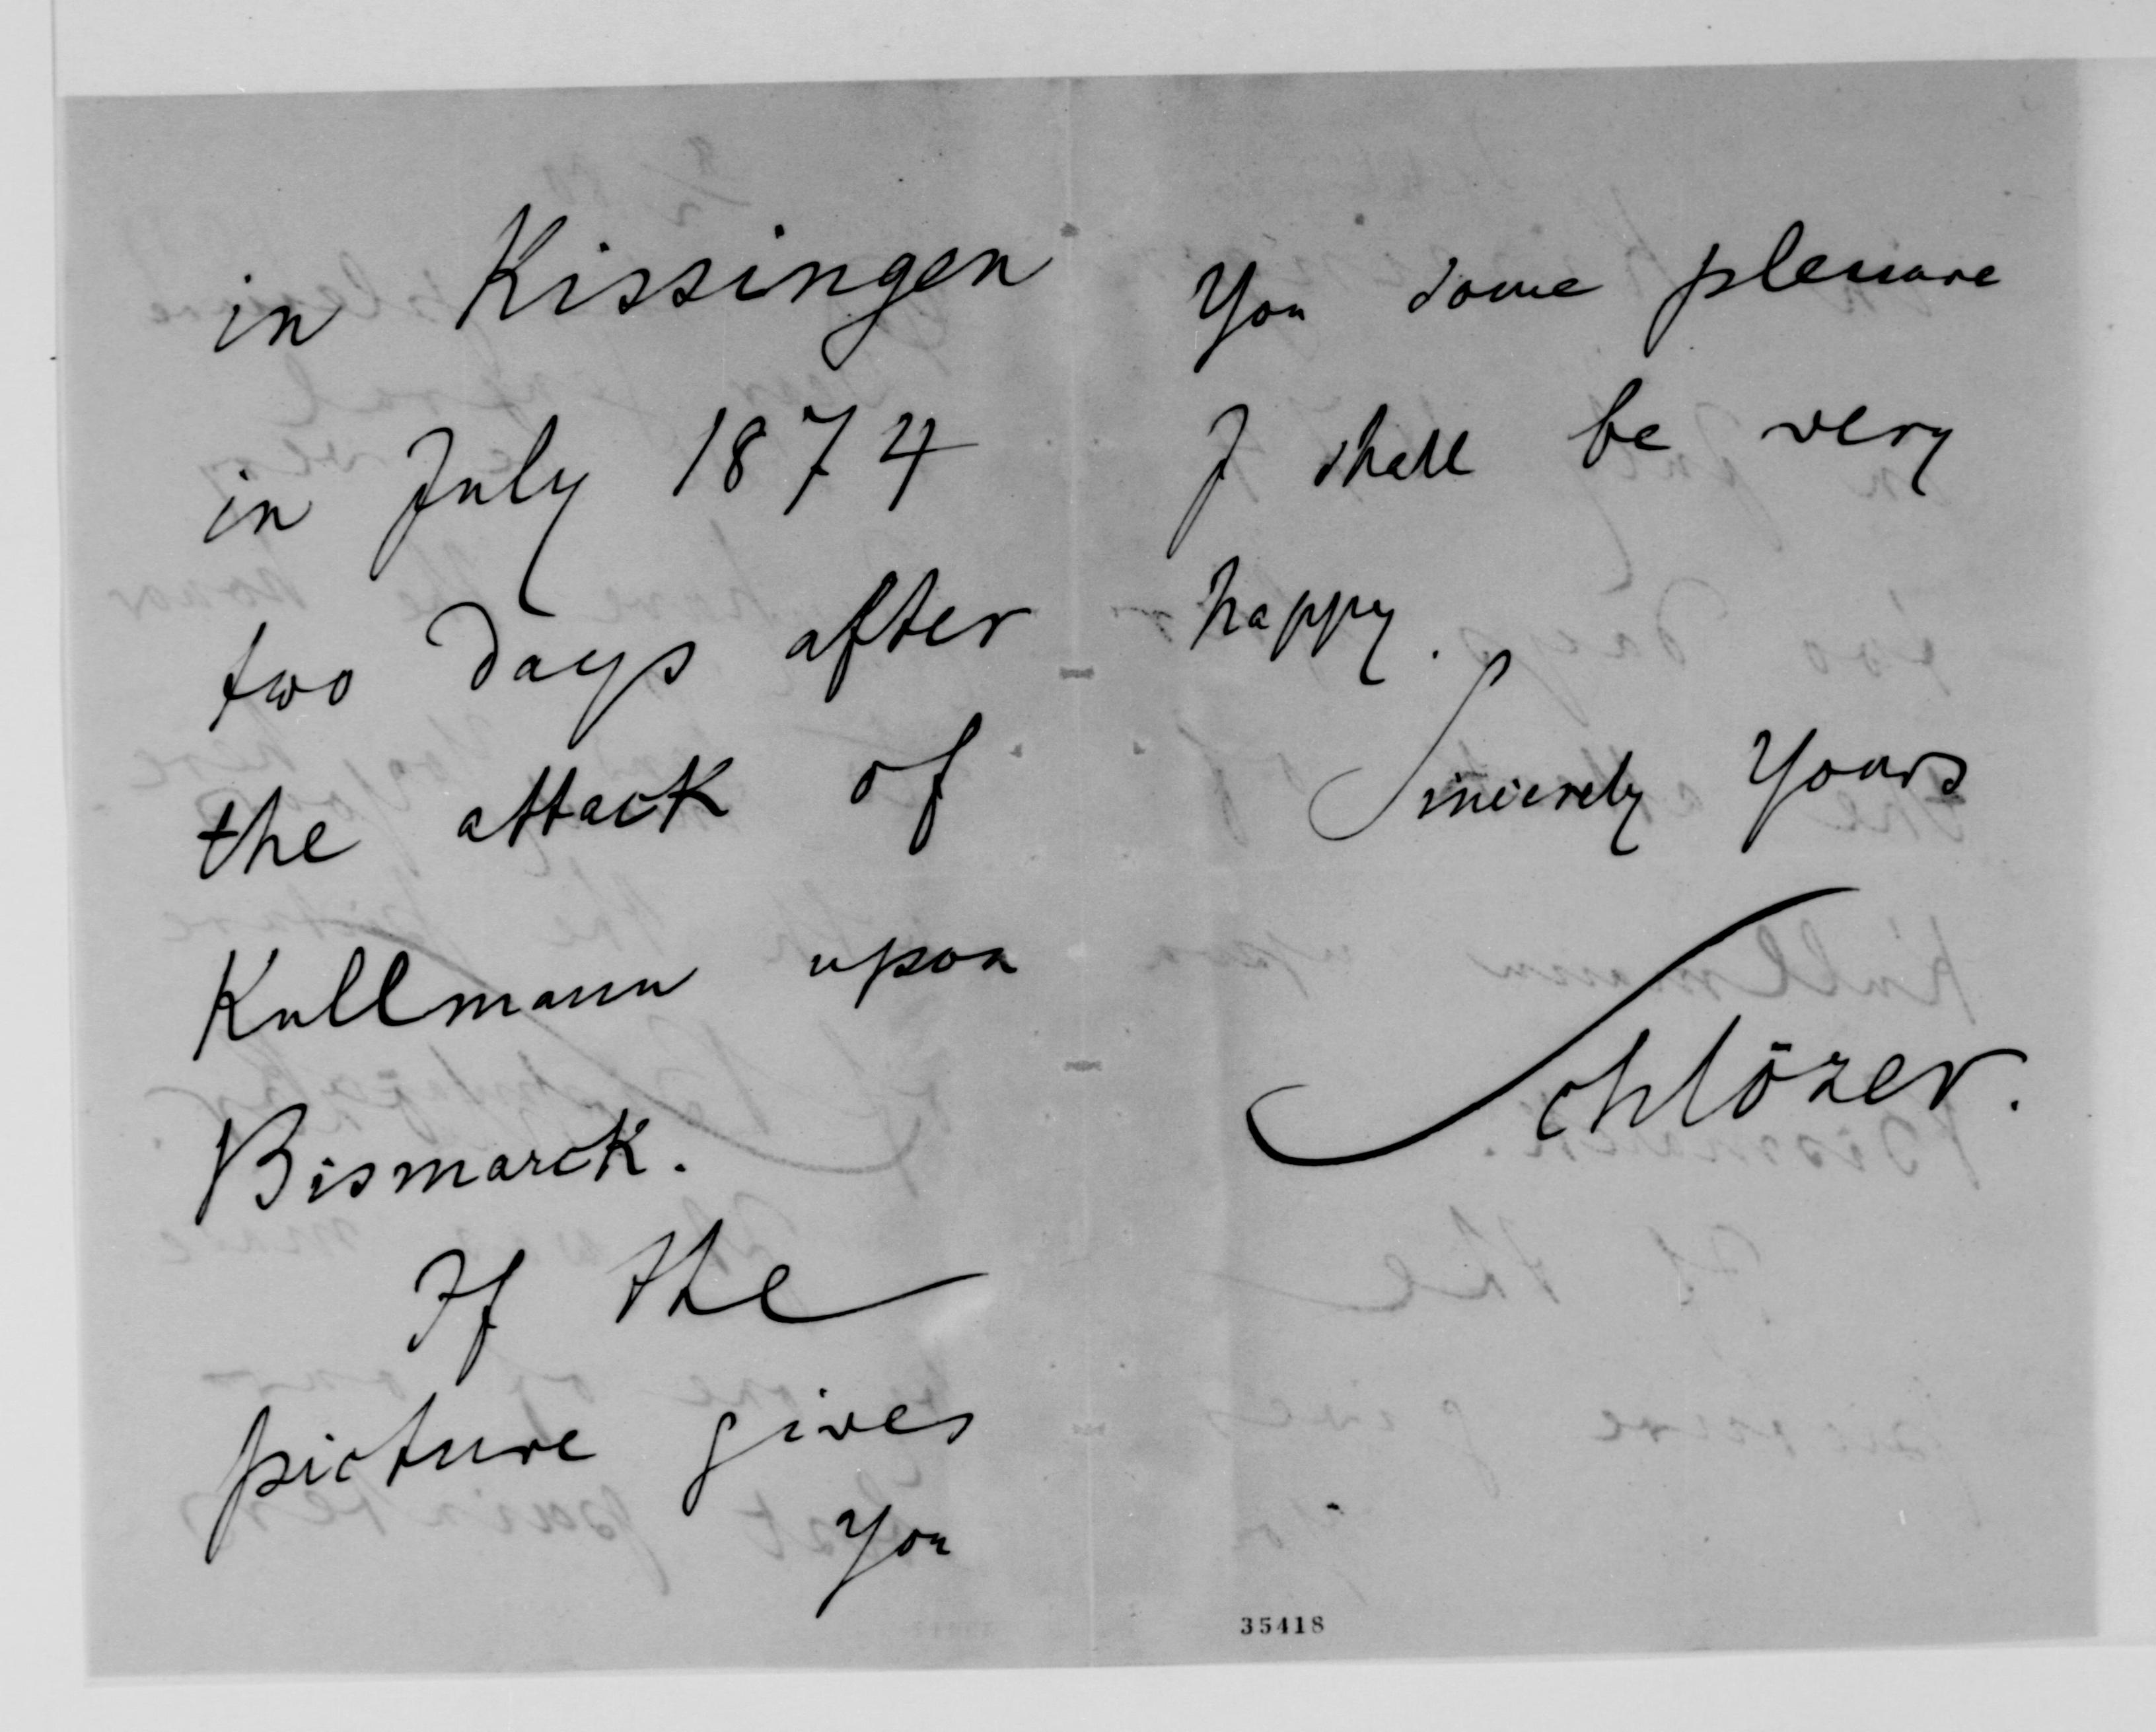 in Kissingen
in July 1874
two days after
the attack of
Kullmann upon
Bismarck.
If the
picture gives
you
you some pleasure
I shall be very
happy.
Sincerely Yours
Schlözer.
35418